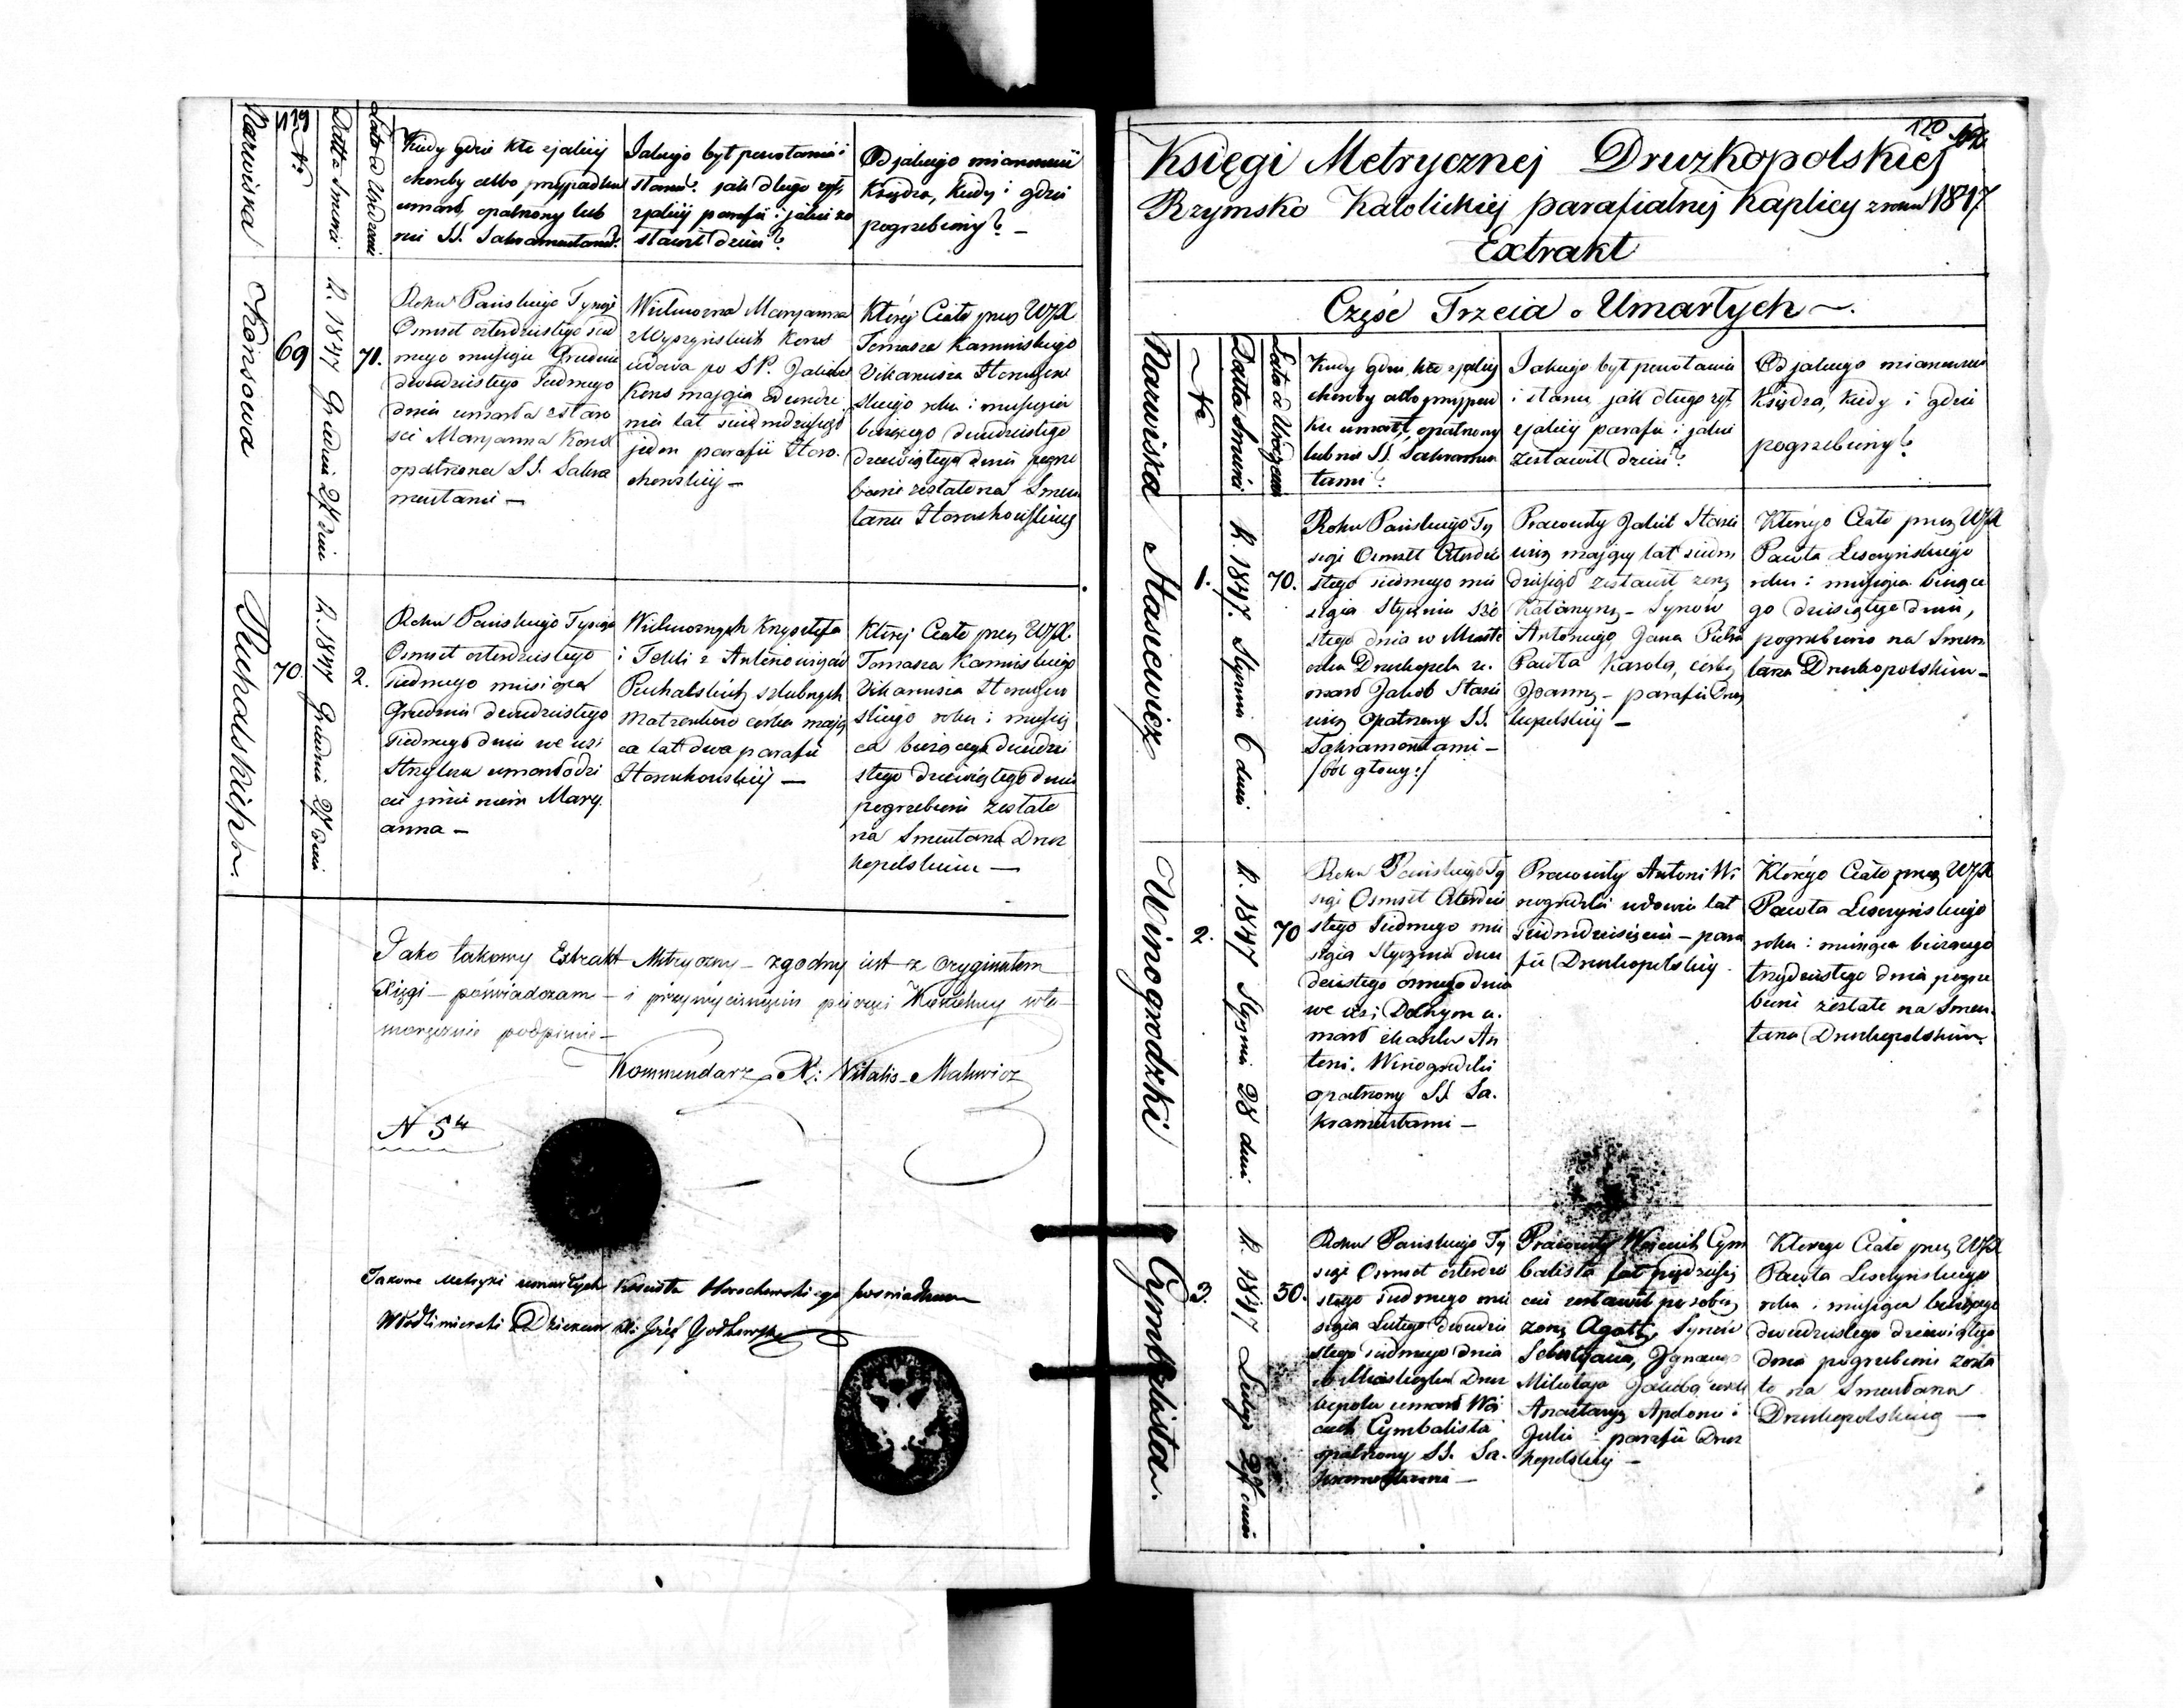 119
Nazwiska
N.
Datta Śmierci
Lata od Urodzenia
Kiedy gdzie kto z jakiej
choroby albo przypadku
umarł, opatrzony lub
nie SS. Sakramentami?
Jakiego był powołania i
stanu? jak długo żył,
z jakiej parafii i jakie zo
stawił dzieci?
Od jakiego mianowicie
Księdza, kiedy i gdzie
pogrzebiony? –
Konsowa
69
R. 1847 Grudnia 27 dnia
71.
Roku Pańskiego Tysiąc
Osmset czterdziestego siud
mego miesiąca Grudnia
dwudziestego siudmego
dnia umarła z staro
ści Maryanna Kons
opatrzona SS. Sakra
mentami –
Wielmożna Maryanna
z Wyszyńskich Kons
wdowa po SP. Jakubie
Kons mająca od urodze
nia lat siedmdziesiąt
jeden parafii Horo
chowskiej –
Której Ciało przez WJX
Tomasza Kamińskiego
Vikariusza Horochow
skiego roku i miesiąca
bieżącego dwudziestego
dziewiątego dnia pogrze
bione zostało na Smen
tarzu Horochowskim
Puchalskich
70.
R. 1847 Grudnia 27 dnia
2.
Roku Pańskiego Tysiąc
Osmset czterdziestego
siedmego miesiąca
Grudnia dwudziestego
siedmego dnia we wsi
Strzelcu umarło dzi
cie imieniem Mary
anna –
Wielmożnych Krzysztofa
i Tekli z Antonowiczów
Puchalskich szlubnych
Małżonków córka mają
ca lat dwa parafii
Horochowskiej –
Której Ciało przez WJX.
Tomasza Kamińskiego
Vikariusza Horochow
skiego roku i miesią
ca bieżącego dwudzie
stego dziewiątego dnia
pogrzebione zostało
na Smentarzu Druż
kopolskim –
Jako takowy Extrakt Metryczny – zgodny jest z oryginałem
Xięgi – poświadczam – i przy wyciśnięciu pieczęci Kościelnej wła
snoręcznie podpisuje –
Kommendarz X: Vitalis Makowicz
N 54
Takowe Metryki umarłych Kościoła Horochowskiego poświadczam
Włodzimierski Dziekan X: Józef Godlewski
120
Księgi Metrycznej Drużkopolskiej
Rzymsko Katolickiej parafialnej Kaplicy z roku 1847
Extrakt
Część Trzecia o Umarłych –.
Nazwiska
N.
Datta Śmierci
Lata od Urodzenia
Kiedy gdzie, kto z jakiej
choroby albo przypad
ku umarł, opatrzony
lub nie SS. Sakramen
tami?
Jakiego był powołania
i stanu, jak długo żył,
z jakiej parafii i jakie
zostawił dzieci?
Od jakiego mianowicie
Księdza, kiedy i gdzie
pogrzebiony?
Stasiewicz
1.
R. 1847. Stycznia 6 dnia
70.
Roku Pańskiego Ty
siąc Osmset Czterdzie
stego siedmego mie
siąca Stycznia Szó
stego dnia w Miaste
czku Drużkopolu u
marł Jakób Stasie
wicz opatrzony SS.
Sakramentami –
/ból głowy:/
Pracowity Jakub Stasie
wicz mający lat siedm
dziesiąt zostawił żonę
Katarzynę – Synów
Antoniego, Jana Piotra
Pawła Karola, córkę
Joannę – parafii Druż
kopolskiej –
Którego Ciało przez WJX
Pawła Leszczyńskiego
roku i miesiąca bieżące
go dziesiątego dnia,
pogrzebiono na Smen
tarzu Drużkopolskim –
Winogrodzki
2.
R. 1847 Stycznia 28 dnia
70
Roku Pańskiego Ty
siąc Osmset Czterdzie
stego siedmego mie
siąca Stycznia dwu
dziestego osmego dnia
we wsi u
marł An
toni Winogrodzki
opatrzony SS. Sa
kramentami –
Pracowity Antoni Wi
nogrodzki wdowiec lat
siedmdziesiąt – para
fii Drużkopolskiej.
Którego Ciało przez WJX
Pawła Leszczyńskiego
roku i miesiąca bieżącego
trzydziestego dnia pogrze
bione zostało na Smen
tarzu Drużkopolskim.
Cymbalista.
3.
R. 1847 Lutego 27 dnia
50.
Roku Pańskiego Ty
siąc Osmset czterdzie
stego siedmego mie
siąca Lutego dwudzie
stego siedmego dnia
w Miasteczku Druż
kopolu umarł Woj
ciech Cymbalista
opatrzony SS. Sa
kramentami –
Pracowity Wojciech Cym
balista lat pięćdziesią
zostawił po sobie
żonę Agatę, Synów
Sebastyana, Ignacego
Mikołaja Jakuba córki
Anastazyę Apolonię i
Julię – parafii Druż
kopolskiej –
Którego Ciało przez WJX
Pawła Leszczyńskiego
roku i miesiąca bieżącego
dwudziestego dziewiątego
dnia pogrzebione zosta
ło na Smentarzu
Drużkopolskim –